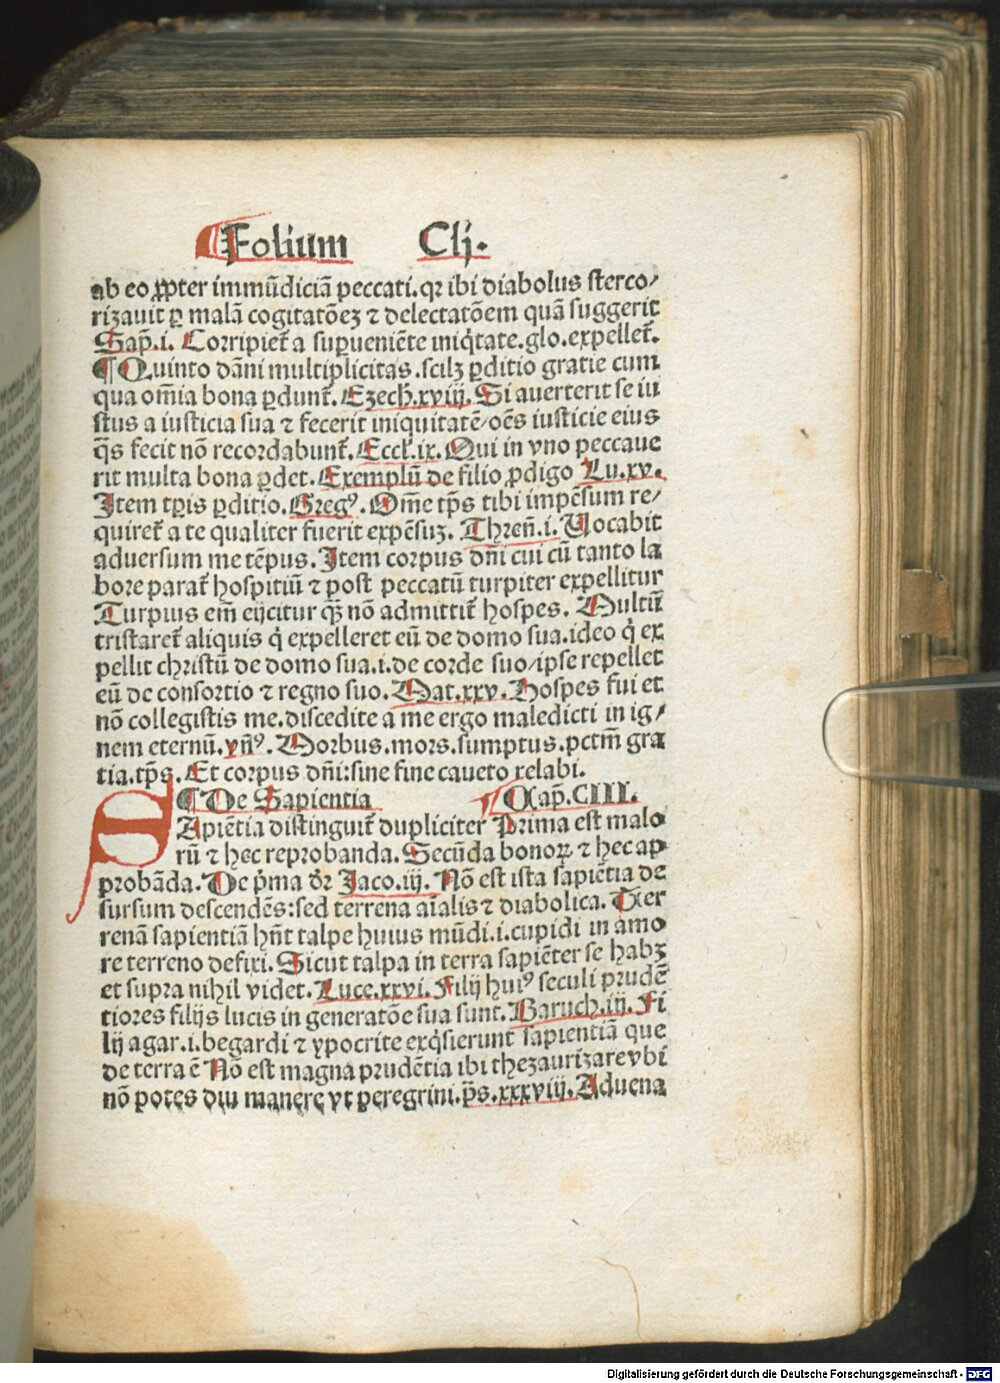 ¶Folium Clj.
ab eo ꝓpter immūdiciā peccati. qꝛ ibi diabolus sterco/
rizauit ꝑ malā cogitatōeꝫ ⁊ delectatōem quā suggerit
Sap̄. i. Corripiet̄ a suꝑueniēte iniq̇tate. glo. expellet̄.
¶ Quinto dāni multiplicitas. scilꝫ ꝑditio gratie cum
qua om̄ia bona ꝑdunt̄. Ezech. xviij. Si auerterit se iu
stus a iusticia sua ⁊ fecerit iniquitatē/ oēs iusticie eius
q̄s fecit nō recordabunt̄. Eccl̄. ix. Qui in vno peccaue
rit multa bona ꝑdet. Exemplū de filio ꝓdigo Lu. xv.
Item tꝑis ꝑditio. Gregꝰ. Om̄e tp̄s tibi impēsum re/
quiret̄ a te qualiter fuerit expēsuꝫ. Thren̄. i. Vocabit
adversum me tēpus. Item corpus dn̄i cui cū tanto la
bore parat̄ hospitiū ⁊ post peccatū turpiter expellitur
Turpius em̄ eijcitur qꝫ̄ nō admittit̄ hospes. Multū
tristaret̄ aliquis q̇ expelleret eū de domo sua. ideo q̇ ex
pellit christū de domo sua .i. de corde suo/ ipse repellet
eū de consortio ⁊ regno suo. Mat. xxv. Hospes fui et
nō collegistis me. discedite a me ergo maledicti in ig/
nem eternū. vn̄ꝰ. Morbus. mors. sumptus. pctm̄ gra
tia. tp̄s. Et corpus dn̄i: sine fine caueto relabi.
¶ De Sapientia ¶ Cap̄. CIII.
SApiētia distinguit̄ dupliciter Prima est malo
rū ⁊ hec reprobanda. Secūda bonoꝝ ⁊ hec ap
probāda. De p̄ma dr̄ Jaco. iij. Nō est ista sapiētia de
sursum descendēs: sed terrena aīalis ⁊ diabolica. Ter
renā sapientiā hn̄t talpe huius mūdi .i. cupidi in amo
re terreno defixi. Sicut talpa in terra sapiēter se habꝫ
et supra nihil videt. Luce. xxvi. Filij huiꝰ seculi prudē
tiores filijs lucis in generatōe sua sunt. Baruch. iij. Fi
lij agar .i. begardi ⁊ ypocrite exq̇sierunt sapientiā que
de terra ē Nō est magna prudētia ibi thezaurizare vbi
nō potes diu manere vt peregrini. p̄s. xxxviij. Aduena
Digitalisierung gefördert durch die Deutsche Forschungsgemeinschaft - DFG